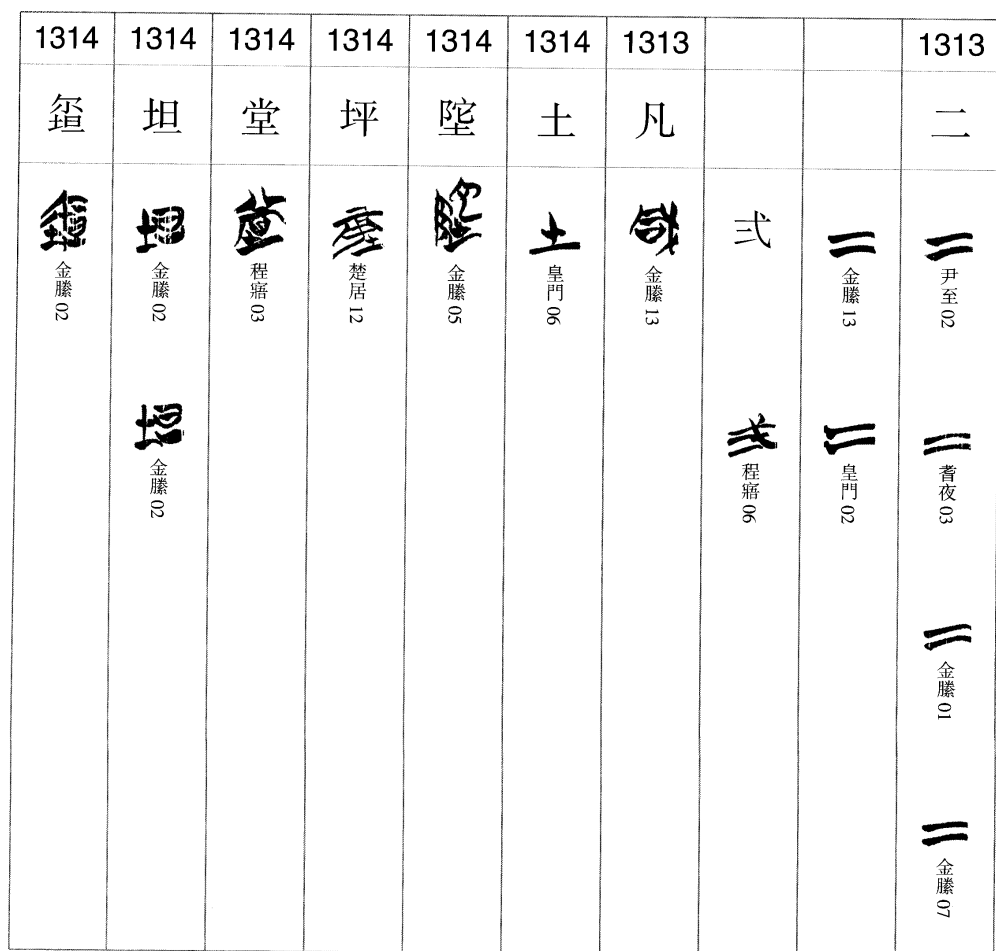 1313
二
二
尹至 02
二
耆夜 03
二
金縢 01
二
金縢 07
二
金縢 13
二
皇門 02
弍
弍
程寤 06
1313
凡
金縢 13
1314
土
土
皇門 06
1314
金縢 05
1314
坪
楚居 12
1314
堂
程寤 03
1314
坦
金縢 02
金縢 02
1314
金縢 02